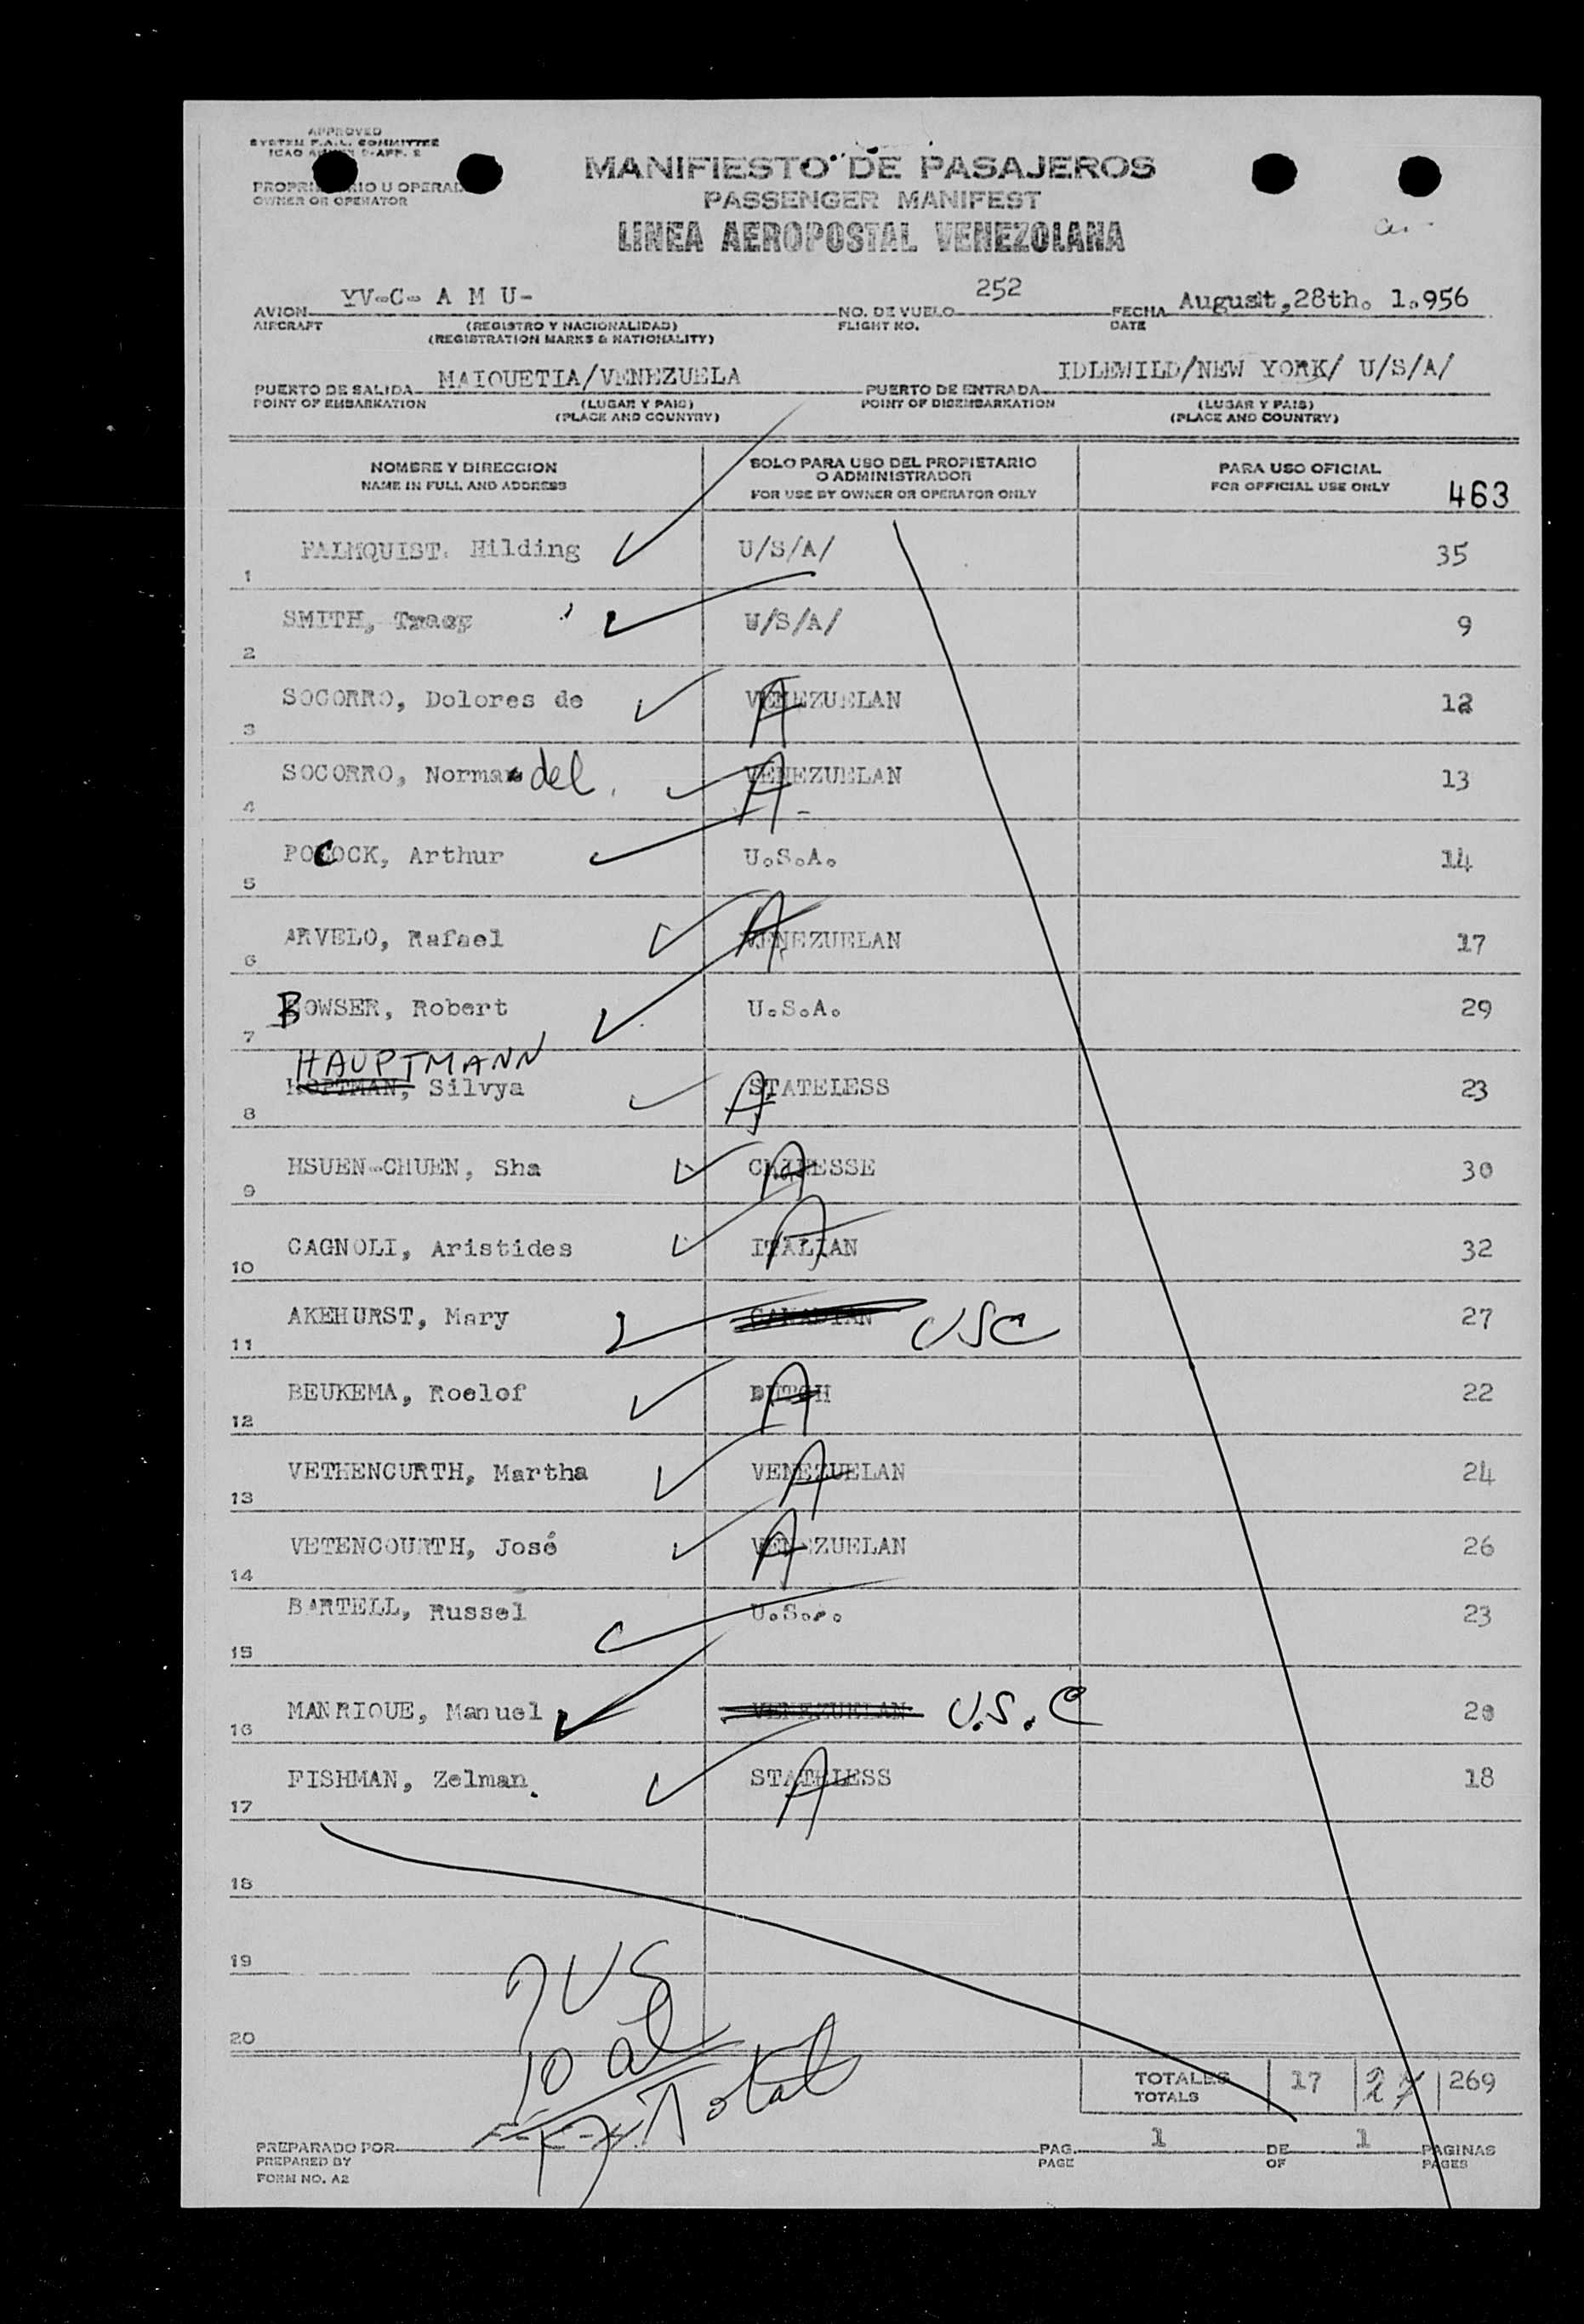 APPROVED
SYSTEM F.A.L. COMMITTEE
ICAO ANNEX 9-APP. 2
PROPRIETARIO U OPERADOR
OWNER OR OPERATOR
MANIFIESTO DE PASAJEROS
PASSENGER MANIFEST
LINEA AEROPOSTAL VENEZOLANA
AVION YV-C- A M U- NO. DE VUELO 252 FECHA August,28th. 1.956
AIRCRAFT (REGISTRO Y NACIONALIDAD) FLIGHT NO. DATE
(REGISTRATION MARKS & NATIONALITY)
PUERTO DE SALIDA MAIQUETIA/VENEZUELA PUERTO DE ENTRADA IDLEWILD/NEW YORK/ U/S/A/
POINT OF EMBARKATION (LUGAR Y PAIS) POINT OF DISEMBARKATION (LUGAR Y PAIS)
(PLACE AND COUNTRY) (PLACE AND COUNTRY)
NOMBRE Y DIRECCION SOLO PARA USO DEL PROPIETARIO O ADMINISTRADOR PARA USO OFICIAL
NAME IN FULL AND ADDRESS FOR USE BY OWNER OR OPERATOR ONLY FOR OFFICIAL USE ONLY 463
1 PALMQUIST. Hilding U/S/A/ 35
2 SMITH, Tracy U/S/A/ 9
3 SOCORRO, Dolores de VENEZUELAN A 12
4 SOCORRO, Norma del VENEZUELAN A 13
5 POCOCK, Arthur U.S.A. 14
6 ARVELO, Rafael VENEZUELAN A 17
7 BOWSER, Robert U.S.A. 29
HAUPTMANN
8 HOPTMAN, Silvya STATELESS A 23
9 HSUEN-CHUEN, Sha CHINESSE A 30
10 CAGNOLI, Aristides ITALIAN A 32
11 AKEHURST, Mary CANADIAN USC 27
12 BEUKEMA, Roelof DUTCH A 22
13 VETHENCURTH, Martha VENEZUELAN A 24
14 VETENCOURTH, José VENEZUELAN A 26
15 BARTELL, Russel U.S.A. 23
16 MANRIQUE, Manuel VENEZUELAN U.S.C 20
17 FISHMAN, Zelman. STATELESS A 18
18
19
20
7 US
10 al
17 Total
TOTALES 17 27 269
TOTALS
PREPARADO POR PAG. 1 DE 1 PAGINAS
PREPARED BY PAGE OF PAGES
FORM NO. A2